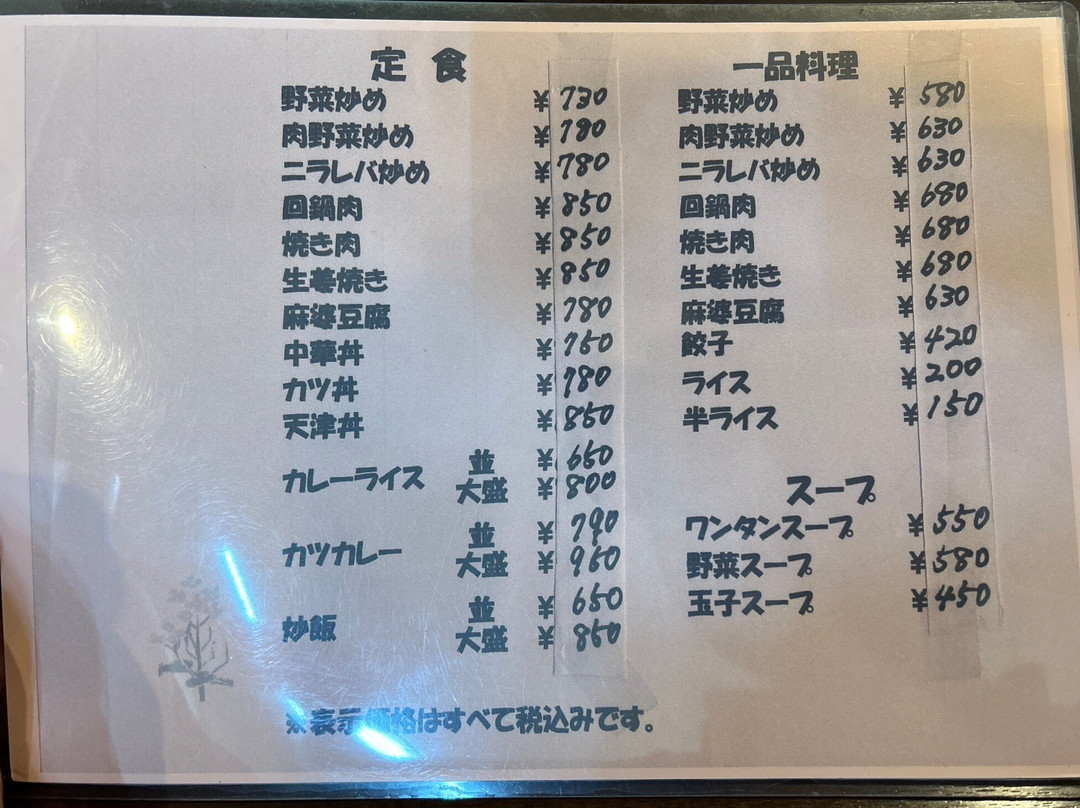 定食
野菜炒め ¥730
肉野菜炒め ¥780
ニラレバ炒め ¥780
回鍋肉 ¥850
焼き肉 ¥850
生姜焼き ¥850
麻婆豆腐 ¥780
中華丼 ¥750
カツ丼 ¥780
天津丼 ¥850
カレーライス 並 ¥650
大盛 ¥800
カツカレー 並 ¥790
大盛 ¥960
炒飯 並 ¥650
大盛 ¥850
※表示価格はすべて税込みです。
一品料理
野菜炒め ¥580
肉野菜炒め ¥630
ニラレバ炒め ¥630
回鍋肉 ¥680
焼き肉 ¥680
生姜焼き ¥680
麻婆豆腐 ¥630
餃子 ¥420
ライス ¥200
半ライス ¥150
スープ
ワンタンスープ ¥550
野菜スープ ¥580
玉子スープ ¥450